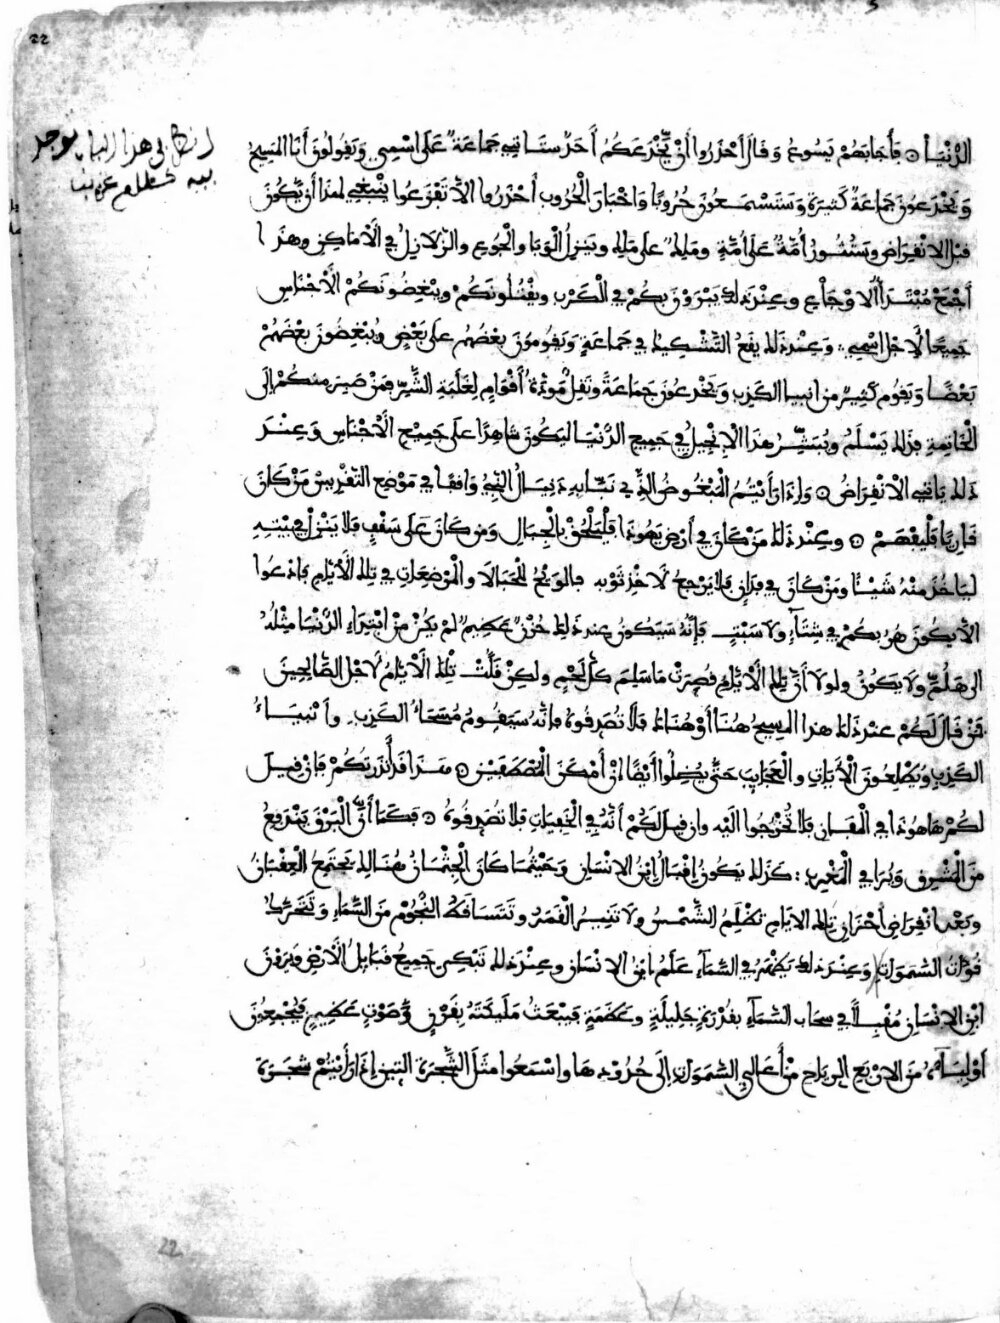 22
انظر في هذا الباب يوجد
فيه
الدُّنْيَا ۞ فَأَجَابَهُمْ يَسُوعُ وَقَالَ أحْذَرُوا أَنْ يَّخْدَعَكُم أَحَدٌ سَتَاتِي جَمَاعَةٌ عَلَى اسْمِي وَيَقُولُونَ أنَا الْمَسِيحُ
وَيَخْدَعُونَ جَمَاعَةً كَثِيرَةً وَسَتَسْمَعُونَ حُرُوبًا وَاخْبَارَ الْحُرُوبِ أحْذَرُوا الاَّ تَفْزَعُوا يَنْبَغِي لهذا أَن يَّكُونَ
قبْلَ الانْقِرَاضِ وسَتَثُورُ أُمَّةٌ عَلَى أُمَّةٍ ومَلِكٌ على مَلِكٍ ويَنزِلُ الْوَبَا والْجُوعِ والزَّلازِلُ في الْأَمَاكِنِ وهذَا
أَجْمَعُ مُبْتَدَأُ الاوْجَاعِ وعِنْدَ ذلك يَبْرَؤونَ بِكُمْ في الْكَرْبِ ويقْتُلُونَكُمْ ويُبْغِضُونَكُمْ الْأَجْنَاسِ
جَمِيعًا لِأَجْلِ اسْمِي ۞ وعِنْدَ ذَلكَ يَقَعُ التَّشْكِيكُ فِي جَمَاعَةٍ وَيَقُومُونَ بعْضُهُمْ على بَعْضٍ ويُبْغِضُونَ بَعْضُهُمْ
بَعْضًا وَيَقُومُ كَثِيرٌ من انبيا الكَذِبِ وَيَخْدعُونَ جَمَاعَةً وتَقِلُّ مَوَدَّةُ أقْوَامٍ لِغَلَبَةِ الشَّرِّ فمَنْ صَبَرَ منكُمْ إلَى
الْخَاتِمَةِ فذَلك يَسْلَمُ ويُبَشَّرُ هذَا الْإنْجِيلُ فِي جَمِيعِ الدُّنْيَا ليَكُونَ شَاهِدًا على جَمِيعِ الْأَجْنَاسِ وعِنْدَ
ذلك يَاتِي الانْقِرَاضُ ۞ وَإذَا رَأَيْتُمُ الْمَبْغُوضَ الذِي نَبَّا بِهِ دَنِيَالُ النَّبِيُّ وَاقفًا في مَوْضِعِ التَّقْدِيسِ مَنْ كَانَ
قَارِيًا فَلْيَفْهَمْ ۞ وعِنْد ذَلكَ مَنْ كَانَ في أَرْضِ يَهُوذَا فليَلْحَقْ بِالْجِبَالِ وَمَن كَانَ عَلَى سَقْفٍ فَلا يَنْزِلْ في بَيْتِهِ
ليَاخُذَ منْهُ شَيْئًا ومَنْ كانَ في فدَّانٍ فلا يَرْجِعْ لِأَخْذِ ثَوْبِهِ فالوَيْحُ للحَبَالا والْمُرْضِعَاتِ في تِلكَ الْأَيَّامِ فادْعُوا
الاَّ يكُونَ هُرُبكُمْ في شِتَاءٍ ولا سَبْتٍ فَإنَّهُ سَيَكُونُ عند ذَلكَ حُزْنٌ عَظِيمٌ لمْ يَكُنْ مِنْ ابْتِدَاءِ الدُّنْيَا مِثْلُهُ
الى هَلُمَّ ولا يَكُونُ ولولا أَنَّ تِلكَ الْأَيَّامَ قُصِرَتْ مَا سَلِمَ كلُّ لَحْمٍ ولكِنْ قَلَّتْ تِلْكَ الْأَيَّامُ لأَجْلِ الصَّالِحِينَ
فمَنْ قَالَ لَكُمْ عِنْد ذَلكَ هذا المسِيحُ هُنَا أَوْ هُنَاكَ فلا تُصَدِّقُوهُ فإنَّهُ سَيَقُومُ مُسَحَاءُ الكَذِبِ وأنْبِيَاءُ
الكَذِبِ ويُطْلِعُونَ الْأَيَاتِ والْعَجَايِبَ حَتَّى يُضِلُّوا أيْضًا إنْ أَمْكَنَ الْمُصْطَفَيْنَ ۞ هَذَا قَدْ أَنْذَرْتُكُمْ فإنْ قِيلَ
لكُمْ هَا هُوَذَا في الْمَفَازِ فلا تَخْرُجُوا الَيْهِ وان قِيلَ لَكُمْ أَنَّهُ في الْخَفِيَاتِ فلا تُصَدِّقُوهُ ۞ فكَمَا أنَّ الْبَرْقَ يَنْدَفِعُ
منَ الْمَشْرِقِ وَيُرَا في الْمَغْرِبِ ۞ كَذَلكَ يَكُونُ إقْبَالُ ابْنِ الانْسَانِ وَحَيْثُمَا كَانَ الْجُثْمَانُ هُنَالِكَ يَجْتَمِعُ الْعِقْبَانُ
وبَعْد انْقِرَاضِ أَحْزَانِ تِلكَ الايَّامِ تُظْلِمُ الشَّمْسُ ولا يَنِيرُ القَمَرُ وتَتَسَاقَطُ النُّجُومُ منَ السَّمَاءِ وتَتَحَرَّكُ
قُوَّاتُ السَّمَوَاتِ وَعِنْدَ ذلكَ يَظْهَرُ في السَّمَاءِ عَلَمُ ابْنِ الانْسَانِ وعِنْدَ ذلكَ تَبْكِي جَمِيعُ قبَايِلُ الْأَرْضِ ويَرَوْنَ
ابْنَ الانْسَانِ مُقْبِلاً في سحَابِ السَّمَاءِ بقُدْرَةٍ جَلِيلَةٍ وعَظَمَةٍ فيَبْعَثُ مَلَيِكَتَهُ بِقَرْنٍ وَصَوْتٍ عَظِيمٍ فيَجْمَعُونَ
أَوْلِيَاءَهُ منَ الارْبَعِ الرِيَاحِ مِنْ أَعَالِي السَّمَوَاتِ إلَى حُدُودِهَا واسْمَعُوا مَثَلَ الشَّجَرَةِ التِينِ إذَا رَأَيْتُمْ شَجَرَةَ
22